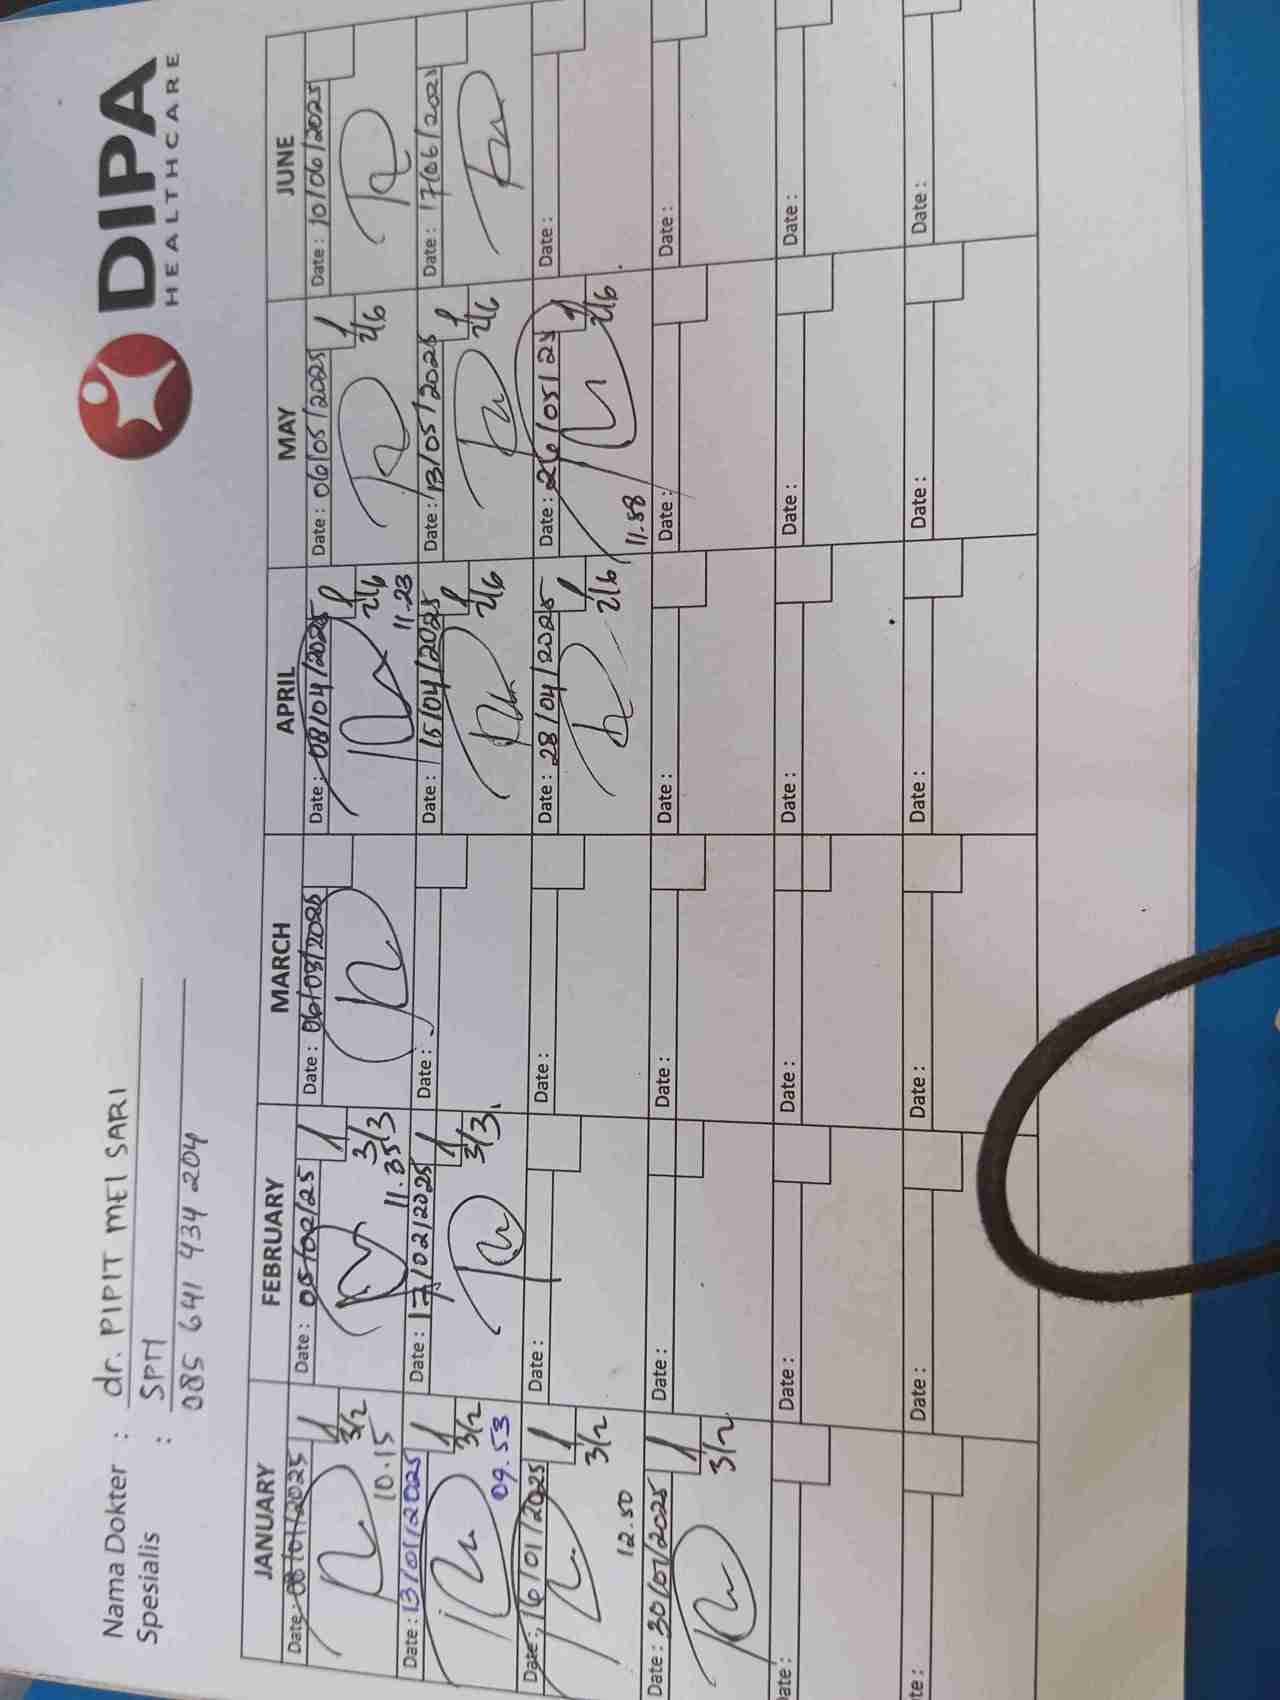 DIPA
HEALTHCARE
Nama Dokter : dr. PIPIT MEI SARI
Spesialis : SPM
085 641 434 204
JANUARY FEBRUARY MARCH APRIL MAY JUNE
Date: 08/01/2025 Date: 05/02/25 Date: 06/03/2025 Date: 08/04/2025 Date: 06/05/2025 Date: 10/06/2025
3/2 3/3 2/6 2/6
10.15 11.35 11.23
Date: 13/01/2025 Date: 17/02/2025 Date: Date: 15/04/2025 Date: 13/05/2025 Date: 17/06/2025
3/2 3/3 2/6 2/6
09.53
Date: 16/01/2025 Date: Date: Date: 28/04/2025 Date: 26/05/25 Date:
3/2 2/6 2/6
12.50 11.58
Date: 30/01/2025 Date: Date: Date: Date: Date:
3/2
Date: Date: Date: Date: Date: Date:
Date: Date: Date: Date: Date: Date: